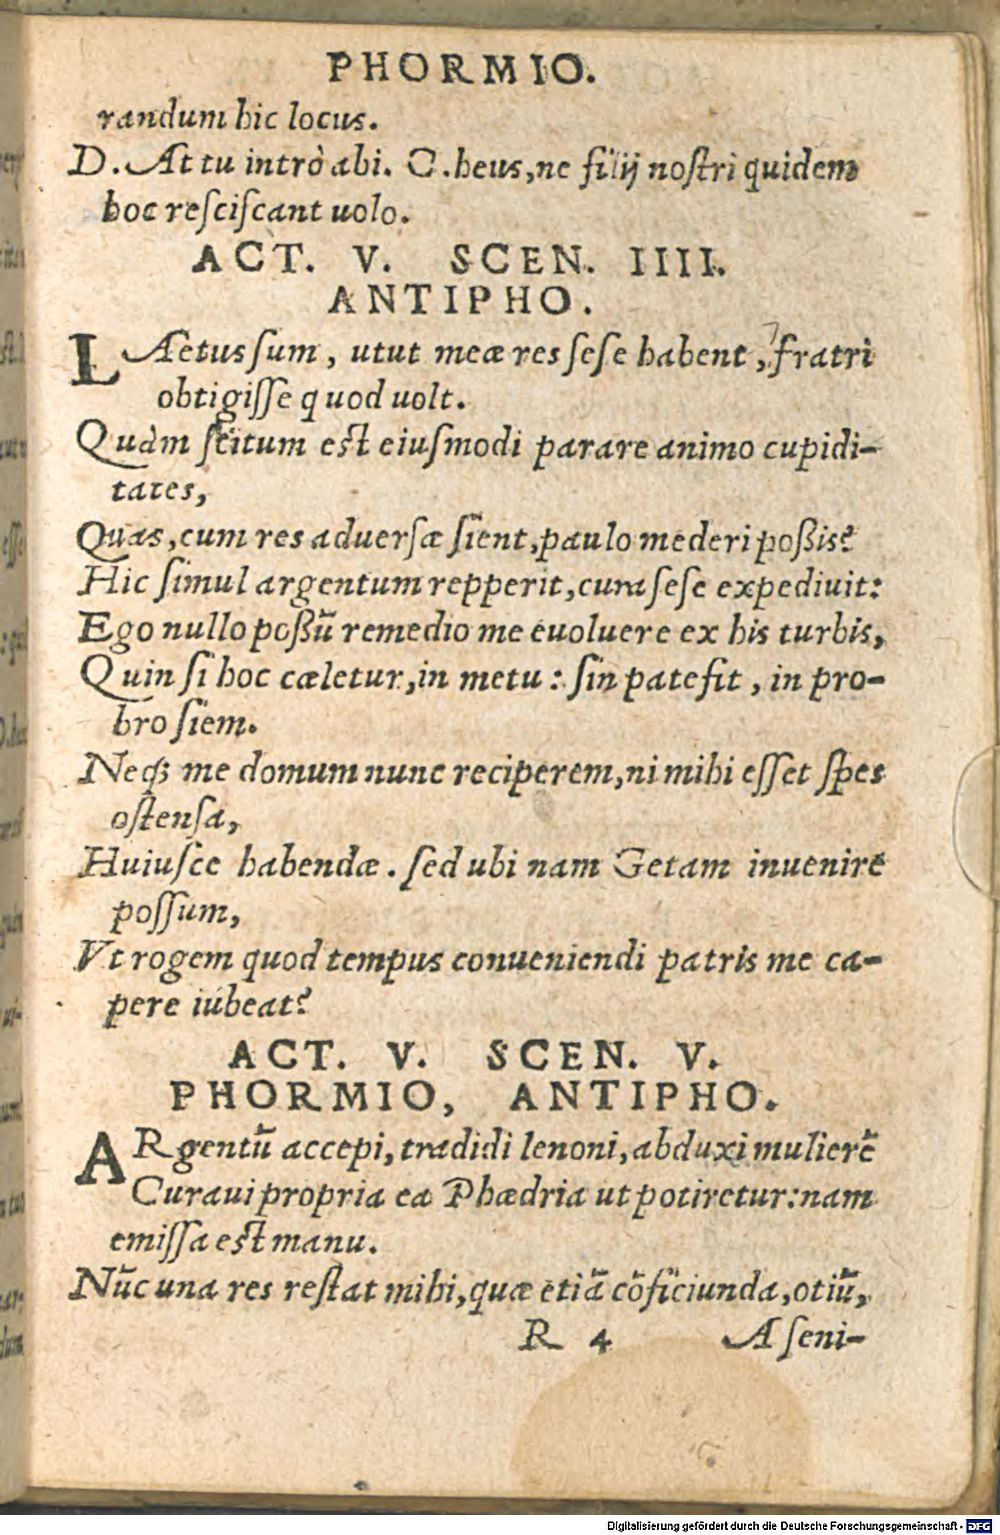 PHORMIO.
randum hic locus.
D. At tu intrò abi. C. heus, ne filij nostri quidem
hoc resciscant uolo.
ACT. V. SCEN. IIII.
ANTIPHO.
LAEtus sum, utut meæ res sese habent, fratri
obtigisse quod uolt.
Quàm scitum est eiusmodi parare animo cupidi-
tates,
Quas, cum res aduersæ sient, paulo mederi poßis?
Hic simul argentum repperit, cura sese expediuit:
Ego nullo poßũ remedio me euoluere ex his turbis,
Quin si hoc cæletur, in metu: sin patefit, in pro-
bro siem.
Neq; me domum nunc reciperem, ni mihi esset spes
ostensa,
Huiusce habendæ. sed ubi nam Getam inuenire
possum,
Vt rogem quod tempus conueniendi patris me ca-
pere iubeat?
ACT. V. SCEN. V.
PHORMIO, ANTIPHO.
ARgentũ accepi, tradidi lenoni, abduxi mulierẽ
Curaui propria ea Phædria ut potiretur: nam
emissa est manu.
Nũc una res restat mihi, quæ etiã cõficiunda, otiũ,
R 4 A seni-
Digitalisierung gefördert durch die Deutsche Forschungsgemeinschaft - DFG